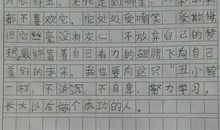 都不喜欢它,它处处受嘲笑,受欺负
但它丝毫没有灰心,不放弃自己的梦
想,最终靠着自己有力的翅膀飞向自己
美好的未来,我也要向这只丑小鸭
一样,不消沉,不自卑,努力学习,
长大以后做个成功的人。